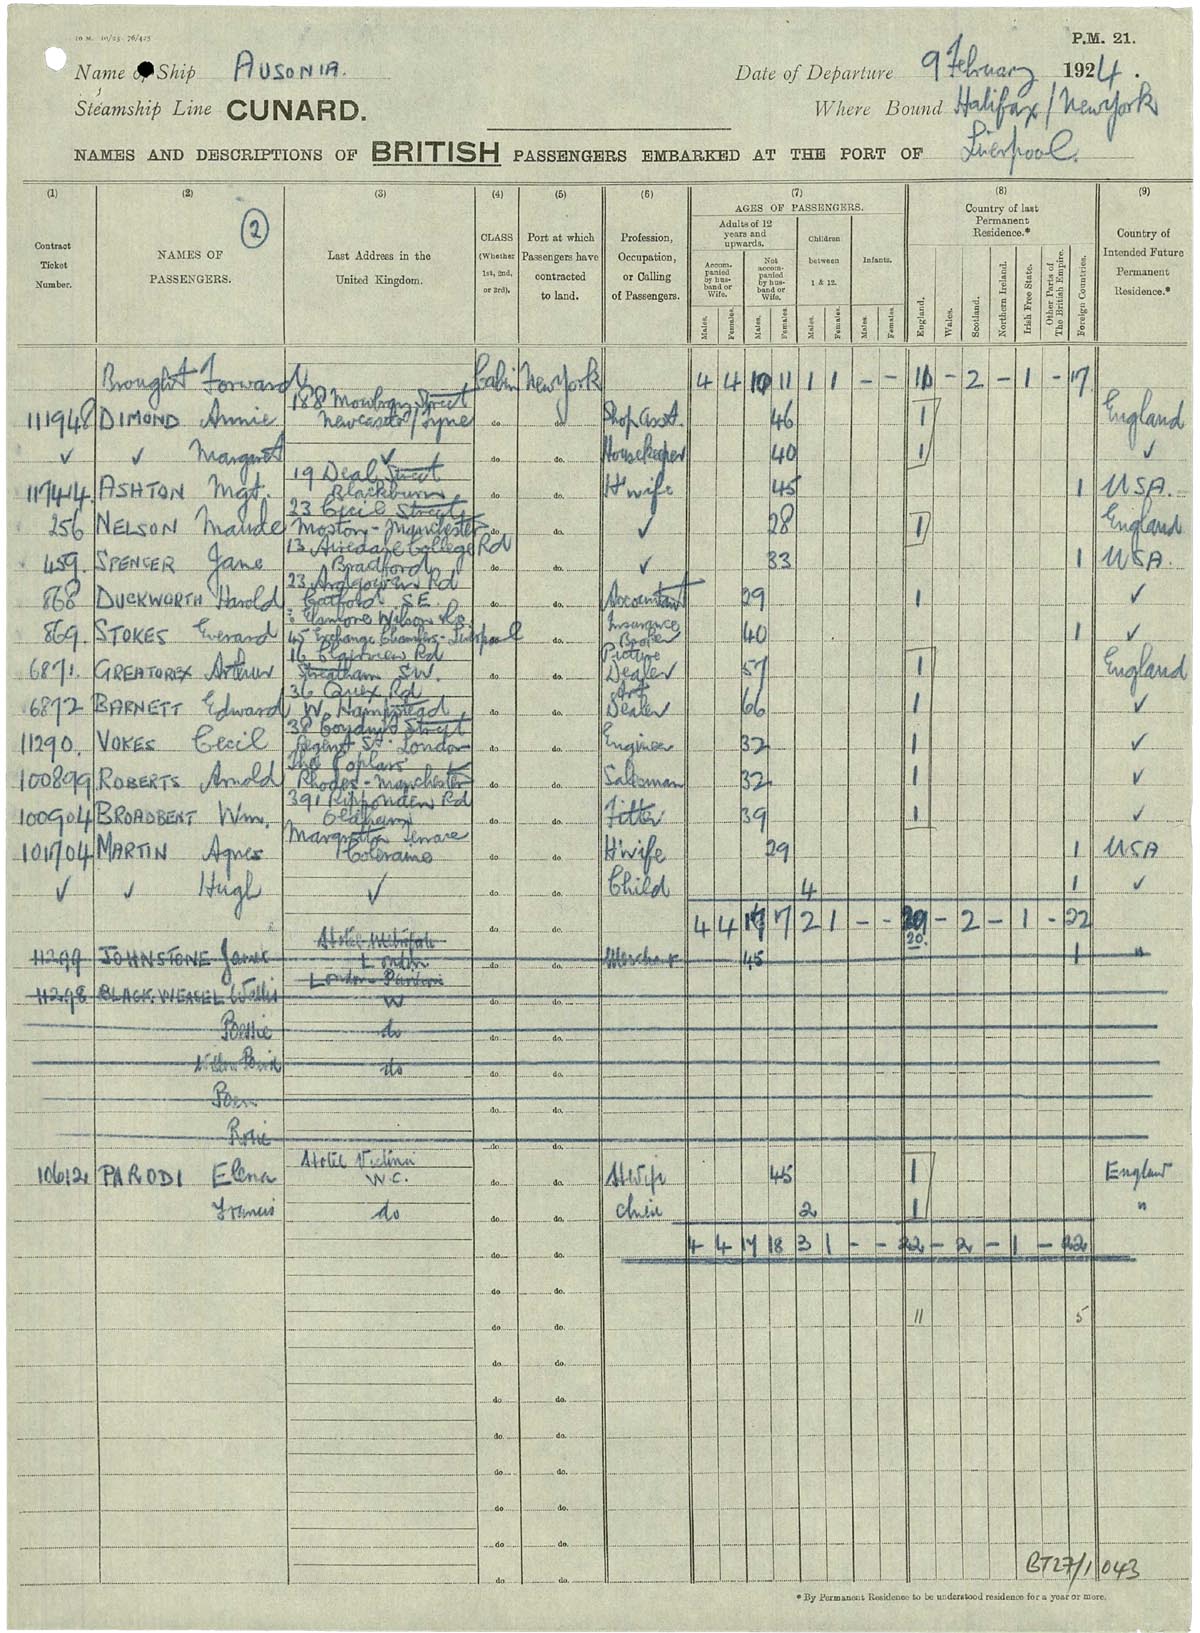 10 M. 10/23 76/425
P.M. 21.
Name of Ship AUSONIA.
Date of Departure 9 February 1924.
Steamship Line CUNARD.
Where Bound Halifax / New York
NAMES AND DESCRIPTIONS OF BRITISH PASSENGERS EMBARKED AT THE PORT OF Liverpool.
(1) (2) (3) (4) (5) (6) (7) (8) (9)
2
Contract Ticket Number.
NAMES OF PASSENGERS.
Last Address in the United Kingdom.
CLASS (Whether 1st, 2nd, or 3rd).
Port at which Passengers have contracted to land.
Profession, Occupation, or Calling of Passengers.
AGES OF PASSENGERS.
Adults of 12 years and upwards.
Accompanied by husband or Wife.
Not accompanied by husband or Wife.
Children between 1 & 12.
Infants.
Males. Females. Males. Females. Males. Females. Males. Females.
Country of last Permanent Residence.*
England. Wales. Scotland. Northern Ireland. Irish Free State. Other Parts of The British Empire. Foreign Countries.
Country of Intended Future Permanent Residence.*
Brought Forward Cabin New York 4 4 10 11 1 1 - - 11 - 2 - 1 - 17
188 Mowbray Street
111948 DIMOND Annie Newcastle/Tyne do. do. Shop Asst. 46 1 England
✓ ✓ Margaret ✓ do. do. Housekeeper 40 1 ✓
19 Deal Street
117414 ASHTON Mgt. Blackburn do. do. H'wife 45 1 USA.
23 Cecil Street
256 NELSON Maude Moston - Manchester do. do. ✓ 28 1 England
13 Airedale College Rd
459. SPENCER Jane Bradford do. do. ✓ 33 1 USA.
23 Ardgowan Rd
868 DUCKWORTH Harold Catford S.E. do. do. Accountant 29 1 ✓
Elsmore Wilson & Co.
869. STOKES Everard 45 Exchange Chambers - Liverpool do. Insurance Broker 40 1 ✓
16 Clairview Rd
6871. GREATOREX Arthur Streatham S.W. do. do. Picture Dealer 57 1 England
36 Quex Rd
6872 BARNETT Edward W. Hampstead do. do. Art Dealer 66 1 ✓
38 Conduit Street
11290. VOKES Cecil Regent St. London do. do. Engineer 32 1 ✓
The Poplars
100899 ROBERTS Arnold Rhodes - Manchester do. do. Salesman 32 1 ✓
391 Ripponden Rd
100904 BROADBENT Wm. Oldham do. do. Fitter 39 1 ✓
Terrace
101704 MARTIN Agnes Coleraine do. do. H'wife 29 1 USA
✓ ✓ Hugh ✓ do. do. Child 4 1 ✓
4 4 17 17 2 1 - - 20 - 2 - 1 - 22
20.
Hotel Metropole
11299 JOHNSTONE James London do. do. Merchant 45 1 "
London Pavilion
11298 BLACK WEASEL W do. do.
Bessie do do. do.
Yellow Bird do do. do.
do. do.
Rosie do. do.
Hotel Victoria
10612 PARODI Elena W.C. do. do. H'Wife 45 1 England
Francis do do. do. Child 2 1 "
4 4 17 18 3 1 - - 22 - 2 - 1 - 22
do. do.
do. do.
11 5
do. do.
do. do.
do. do.
do. do.
do. do.
do. do.
do. do.
do. do.
BT27/1043
* By Permanent Residence to be understood residence for a year or more.